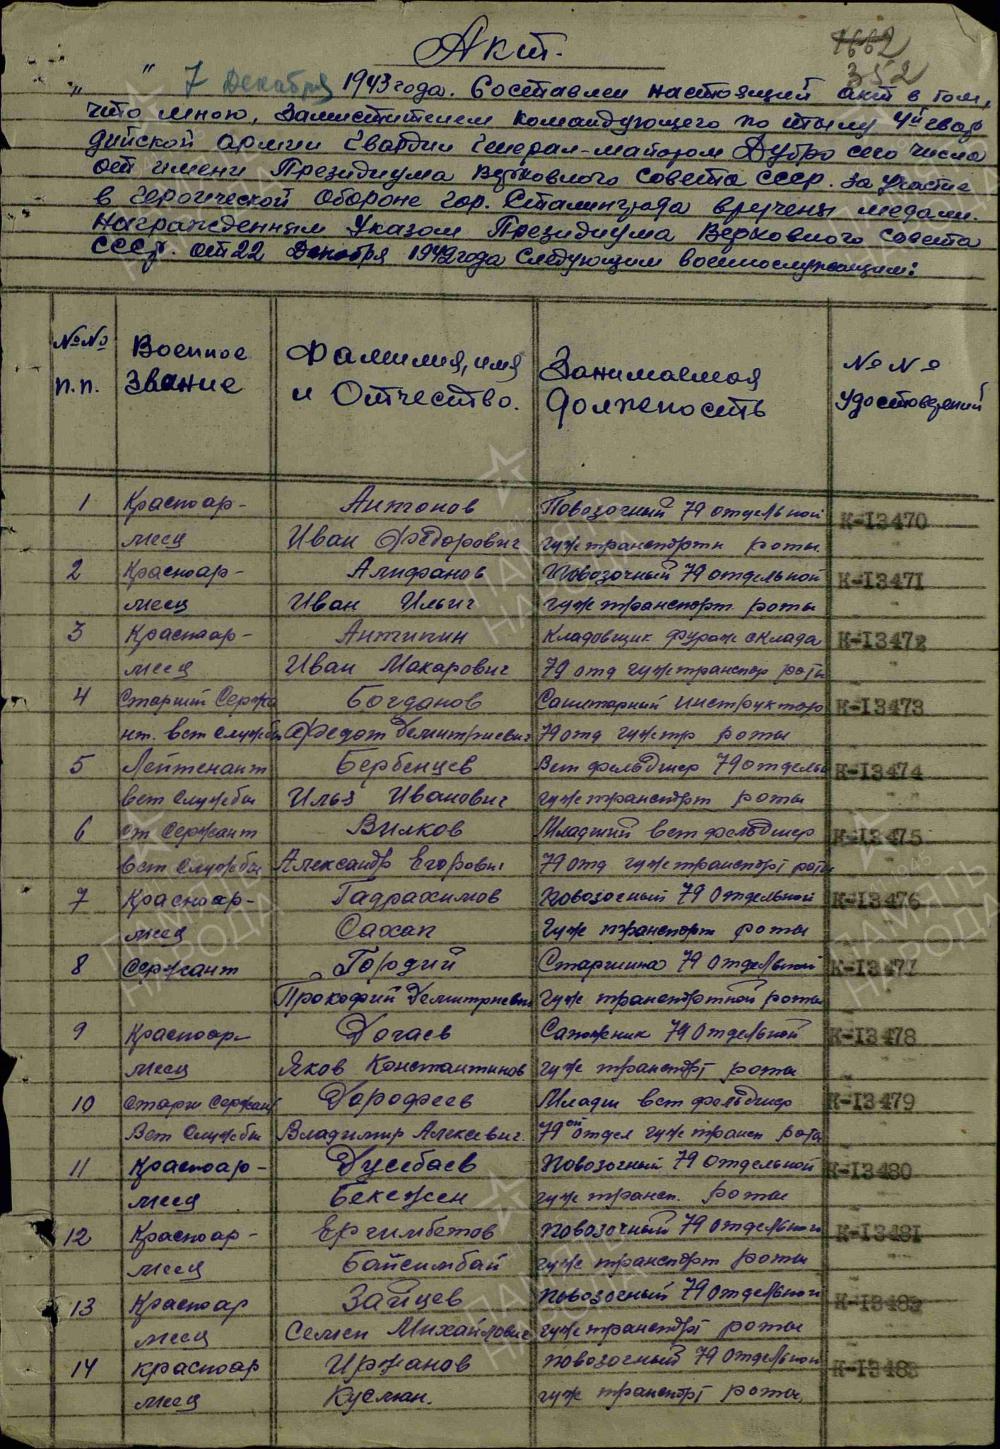 1662
352
Акт.
" 7 Декабря 1943 года. Составлен настоящий акт в том,
что мною, Заместителем командующего по тылу 4й гвар
дийской армии Гвардии Генерал-майором Дубро сего числа
от имени Президиума Верховного Совета СССР. за участие
в героической обороне гор. Сталинграда вручены медали.
Награжденным Указом Президиума Верховного Совета
СССР. от 22 Декабря 1942 года следующим военнослужащим:
№№ п.п.
Военное Звание
Фамилия, имя и Отчество.
Занимаемая Должность
№№ Удостоверений
1 Красноар- Антонов Повозочный 79 отдельной К-13470
меец Иван Фёдорович гужтранспортн роты.
2 Красноар- Алифанов Повозочный 79 отдельной К-13471
меец Иван Ильич гуж транспорт роты
3 Красноар- Антипин Кладовщик фураж склада К-13472
меец Иван Макарович 79 отд гуж транспор роты
4 Старший Сержа Богданов Санитарный инструктор К-13473
нт. вет службы Федот Дмитриевич 79 отд гужтр роты
5 Лейтенант Бербенцев Вет фельдшер 79 отдельн К-13474
вет службы Илья Иванович гуж транспорт роты
6 ст Сержант Вилков Младший вет фельдшер К-13475
вет службы Александр Егорович 79 отд гуж транспорт роты
7 Красноар- Гадрахимов Повозочный 79 отдельной К-13476
меец Сахап гуж транспорт роты
8 Сержант Гордий Старшина 79 отдельной К-13477
Прокофий Дмитриевич гуж транспортной роты
9 Красноар- Догаев Сапожник 79 отдельной К-13478
меец Яков Константинов гуж транспорт роты
10 Старш Сержант Дорофеев Младш вет фельдшер К-13479
Вет Службы Владимир Алексевич. 79ой отдел гуж трансп роты
11 Красноар- Дусебаев Повозочный 79 отдельной К-13480
меец Бекежен гуж трансп. роты
12 Красноар- Ергимбетов Повозочный 79 отдельной К-13481
меец Байсимбай гуж транспорт роты
13 Красноар Зайцев Повозочный 79 отдельной К-13482
меец Семен Михайлович гуж транспорт роты
14 Красноар Иржанов Повозочный 79 отдельной К-13483
меец Кусман. гуж транспорт роты,
ПАМЯТЬ НАРОДА